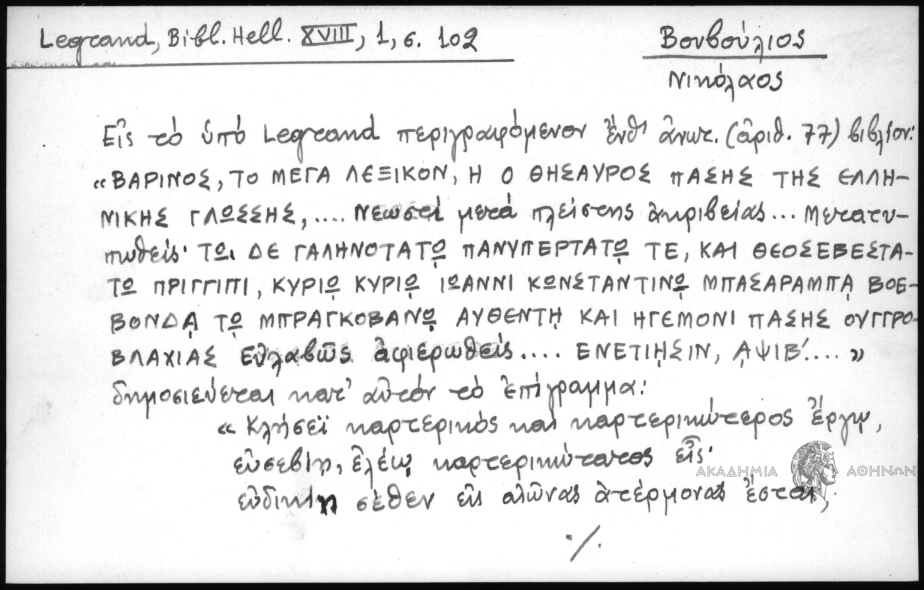 Legrand, Bibl. Hell. XVIII, 1, σ. 102
Βουβούλιος
Νικόλαος
Εἰς τὸ ὑπὸ Legrand περιγραφόμενον ἔνθ' ἀνωτ. (ἀριθ. 77) βιβλίον:
«ΒΑΡΙΝΟΣ, ΤΟ ΜΕΓΑ ΛΕΞΙΚΟΝ, Η Ο ΘΗΣΑΥΡΟΣ ΠΑΣΗΣ ΤΗΣ ΕΛΛΗ-
ΝΙΚΗΣ ΓΛΩΣΣΗΣ, .... Νεωστὶ μετὰ πλείστης ἀκριβείας... Μετατυ-
πωθείς· ΤΩι ΔΕ ΓΑΛΗΝΟΤΑΤῼ ΠΑΝΥΠΕΡΤΑΤῼ ΤΕ, ΚΑΙ ΘΕΟΣΕΒΕΣΤΑ-
Τῼ ΠΡΙΓΓΙΠΙ, ΚΥΡΙῼ ΚΥΡΙῼ ΙΩΑΝΝΙ ΚΩΝΣΤΑΝΤΙΝῼ ΜΠΑΣΑΡΑΜΠᾼ ΒΟΕ-
ΒΟΝΔᾼ Τῼ ΜΠΡΑΓΚΟΒΑΝῼ ΑΥΘΕΝΤῌ ΚΑΙ ΗΓΕΜΟΝΙ ΠΑΣΗΣ ΟΥΓΓΡΟ-
ΒΛΑΧΙΑΣ Εὐλαβῶς ἀφιερωθείς.... ΕΝΕΤΙῌΣΙΝ, ͵ΑΨΙΒ'.... »
δημοσιεύεται κατ' αὐτὸν τὸ ἐπίγραμμα:
« Κλήσεϊ καρτερικὸς καὶ καρτερικώτερος ἔργῳ,
εὐσεβίῃ, ἐλέῳ καρτερικώτατος εἶς·
εὐδικίη σέθεν εἰς αἰῶνας ἀτέρμονας ἔσται,
·/.
ΑΚΑΔΗΜΙΑ ΑΘΗΝΩΝ